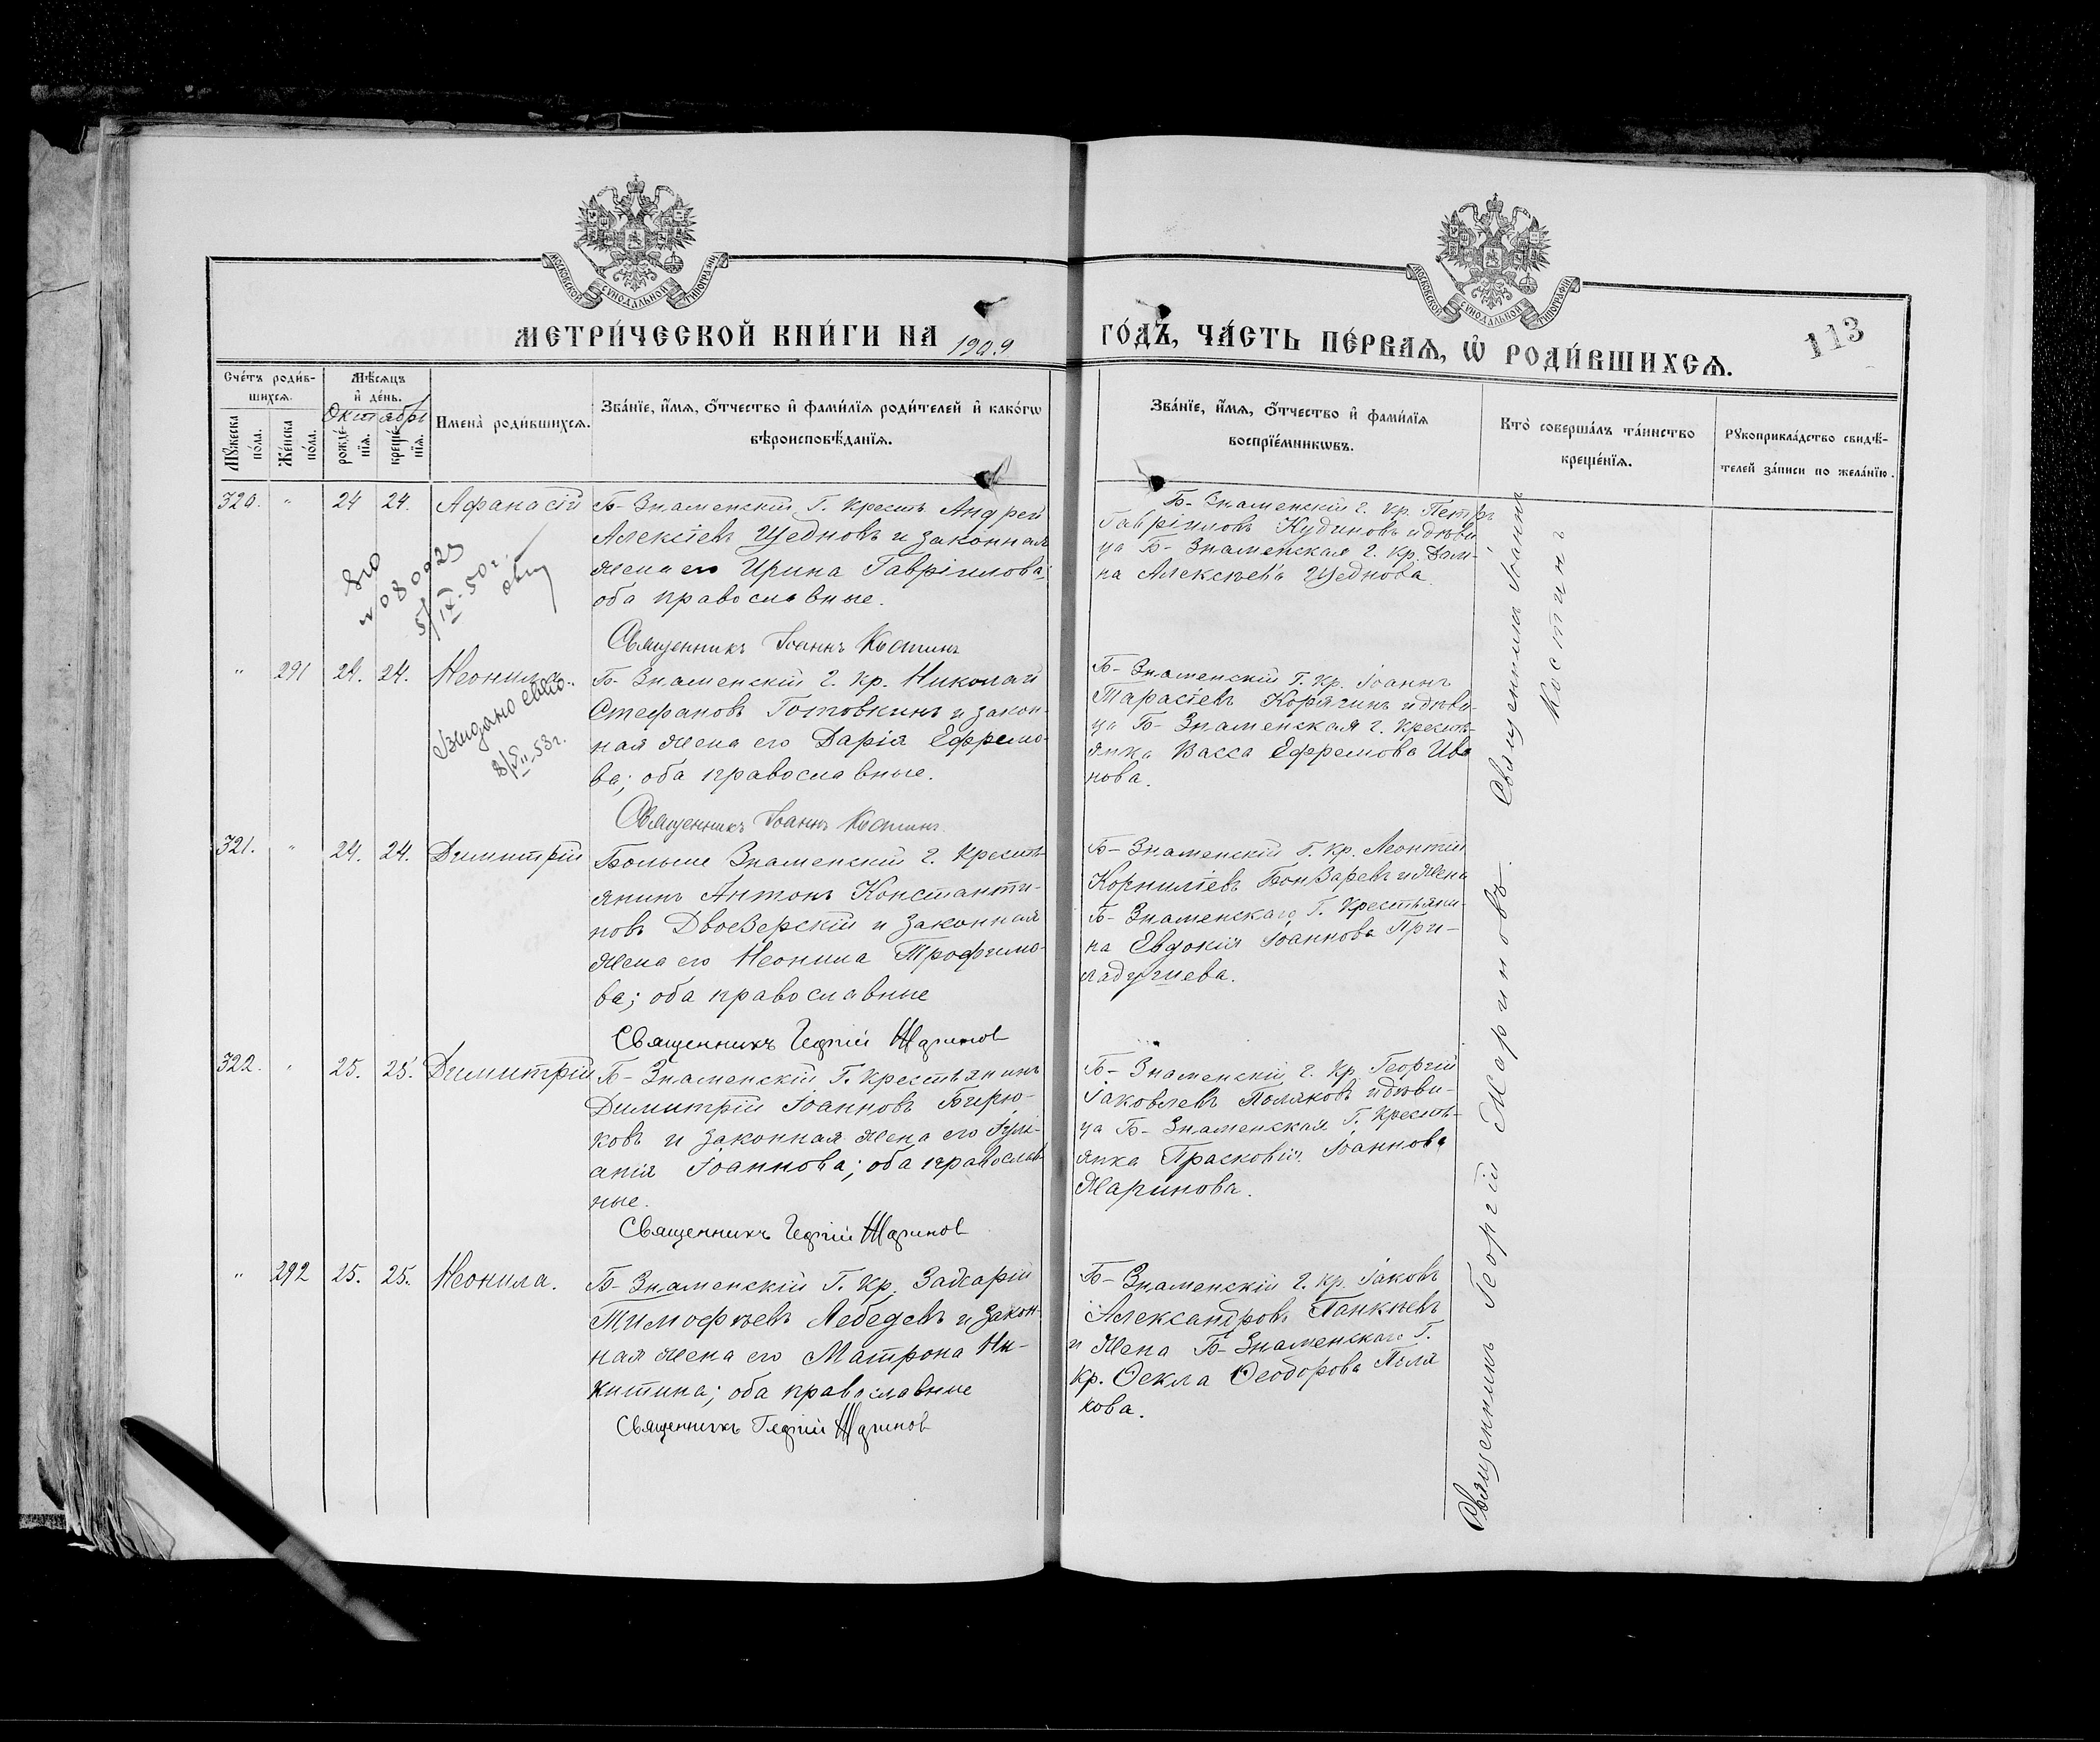 МОСКОВСКОЙ СѴНОДАЛЬНОЙ ТИПОГРАФІИ
МОСКОВСКОЙ СѴНОДАЛЬНОЙ ТИПОГРАФІИ
МЕТРИ́ЧЕСКОЙ КНИ́ГИ НА 1909 ГО́ДЪ, ЧА́СТЬ ПЕ́РВАЯ, Ѡ҆ РОДИ́ВШИХСѦ.
113
Сче́тъ роди́в-
шихсѧ.
Мꙋ́жеска по́ла.
Же́нска по́ла.
Мѣ́сѧцъ
и҆ де́нь.
Октябрь
рожде́-
нїѧ.
креще́-
нїѧ.
Имена̀ роди́вшихсѧ.
Зва́нїе, и҆́мѧ, ѻ҆́тчество и҆ фами́лїѧ роди́телей и҆ како́гѡ
вѣроисповѣ́данїѧ.
Зва́нїе, и҆́мѧ, ѻ҆́тчество и҆ фами́лїѧ
воспрїе́мникѡвъ.
Кто̀ соверша́лъ та́инство
креще́нїѧ.
Рꙋкоприкла́дство свидѣ́-
телей за́писи по жела́нїю.
320. " 24 24. Афанасій
Б-Знаменскій Г. Крест. Андрей
Алексіевъ Щедновъ и законная
жена его Ирина Гавріилова;
оба православные.
Священникъ Іоаннъ Костинъ
Б-Знаменскій г. кр. Петръ
Гавріиловъ Кудиновъ и дѣви-
ца Б-Знаменская г. кр. Дом-
на Алексѣева Щеднова.
5/IX-50 г.
" 291 24. 24. Неонила.
Выдано свид.
53 г.
Б-Знаменскій г. кр. Николай
Стефановъ Готовкинъ и закон-
ная жена его Дарія Ефремо-
ва; оба православные.
Священникъ Іоаннъ Костинъ.
Б-Знаменскій Г. Кр. Іоаннъ
Тарасіевъ Корягинъ и дѣви-
ца Б-Знаменская г. крест-
янка Васса Ефремова Ива
нова.
321. " 24. 24. Димитрій
Больше Знаменскій г. крест-
янинъ Антонъ Константи-
новъ Двоезерскій и законная
жена его Неонила Трофимо-
ва; оба православные
Священникъ Георгій Мариновъ
Б-Знаменскій Г. Кр. Леонтій
Корниліевъ Бонзаревъ и жена
Б-Знаменскаго Г. Крестьяни-
на Евдокія Іоаннова При-
ладушева.
322. " 25. 25. Димитрій
Б-Знаменскій Г. крестьянинъ
Димитрій Іоанновъ Бирю-
ковъ и законная жена его Іулі-
анія Іоаннова; оба православ-
ные.
Священникъ Георгій Мариновъ
Б-Знаменскій г. Кр. Георгій
Іаковлевъ Поляковъ и дѣви-
ца Б-Знаменская Г. Крест-
янка Прасковія Іоаннова
Маринова.
" 292 25. 25. Неонила.
Б-Знаменскій Г. Кр.
Тимофѣевъ Лебедевъ и закон-
ная жена его Матрона Ни-
китина; оба православные
Священникъ Георгій Мариновъ
Б-Знаменскій г. кр. Іаковъ
Александровъ Панкѣевъ
и жена Б-Знаменскаго Г.
Кр. Ѳекла Ѳеодорова Поля
кова.
Священникъ Георгій Мариновъ. Священникъ Іоаннъ
Костинъ